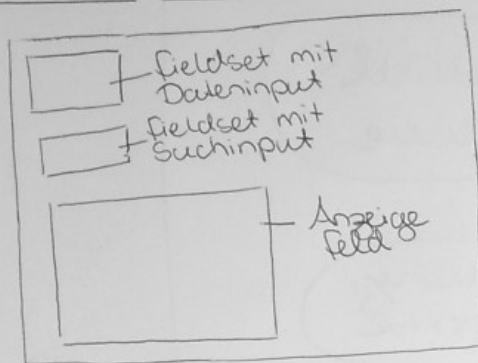 fieldset mit
Dateninput
fieldset mit
Suchinput
Anzeige
feld